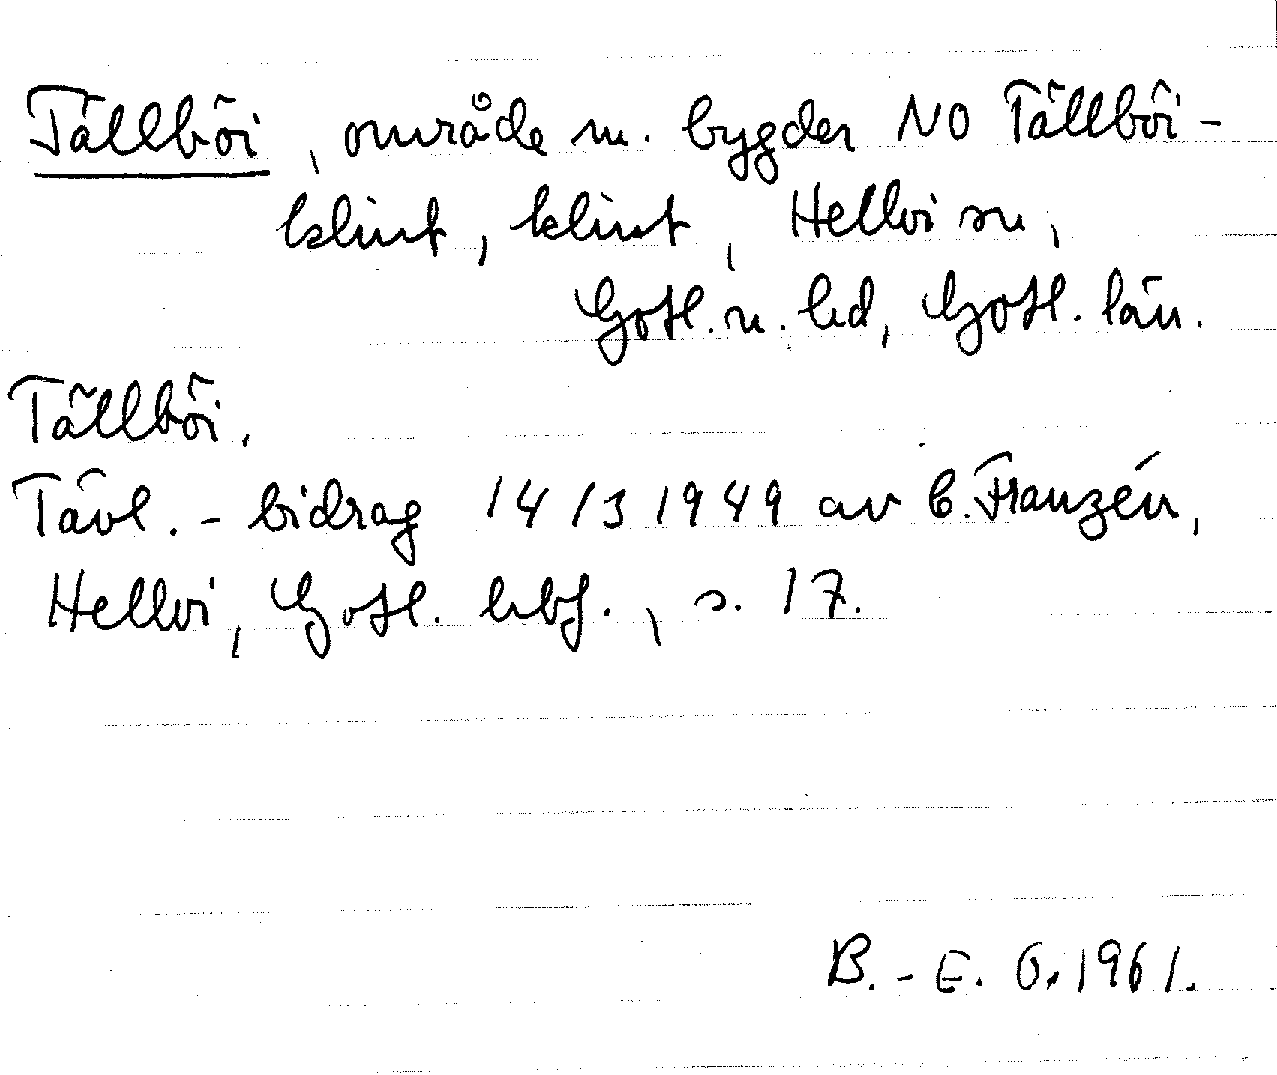 Tällböi, område m. bygder NO Tällböi-
klint, klint, Hellvi sn,
Gotl. n. hd, Gotl. län.
Tällböi.
Tävl.-bidrag 14/3 1949 av C. Franzén,
Hellvi, Gotl. hbf., s. 17.
B.-E. O. 1961.